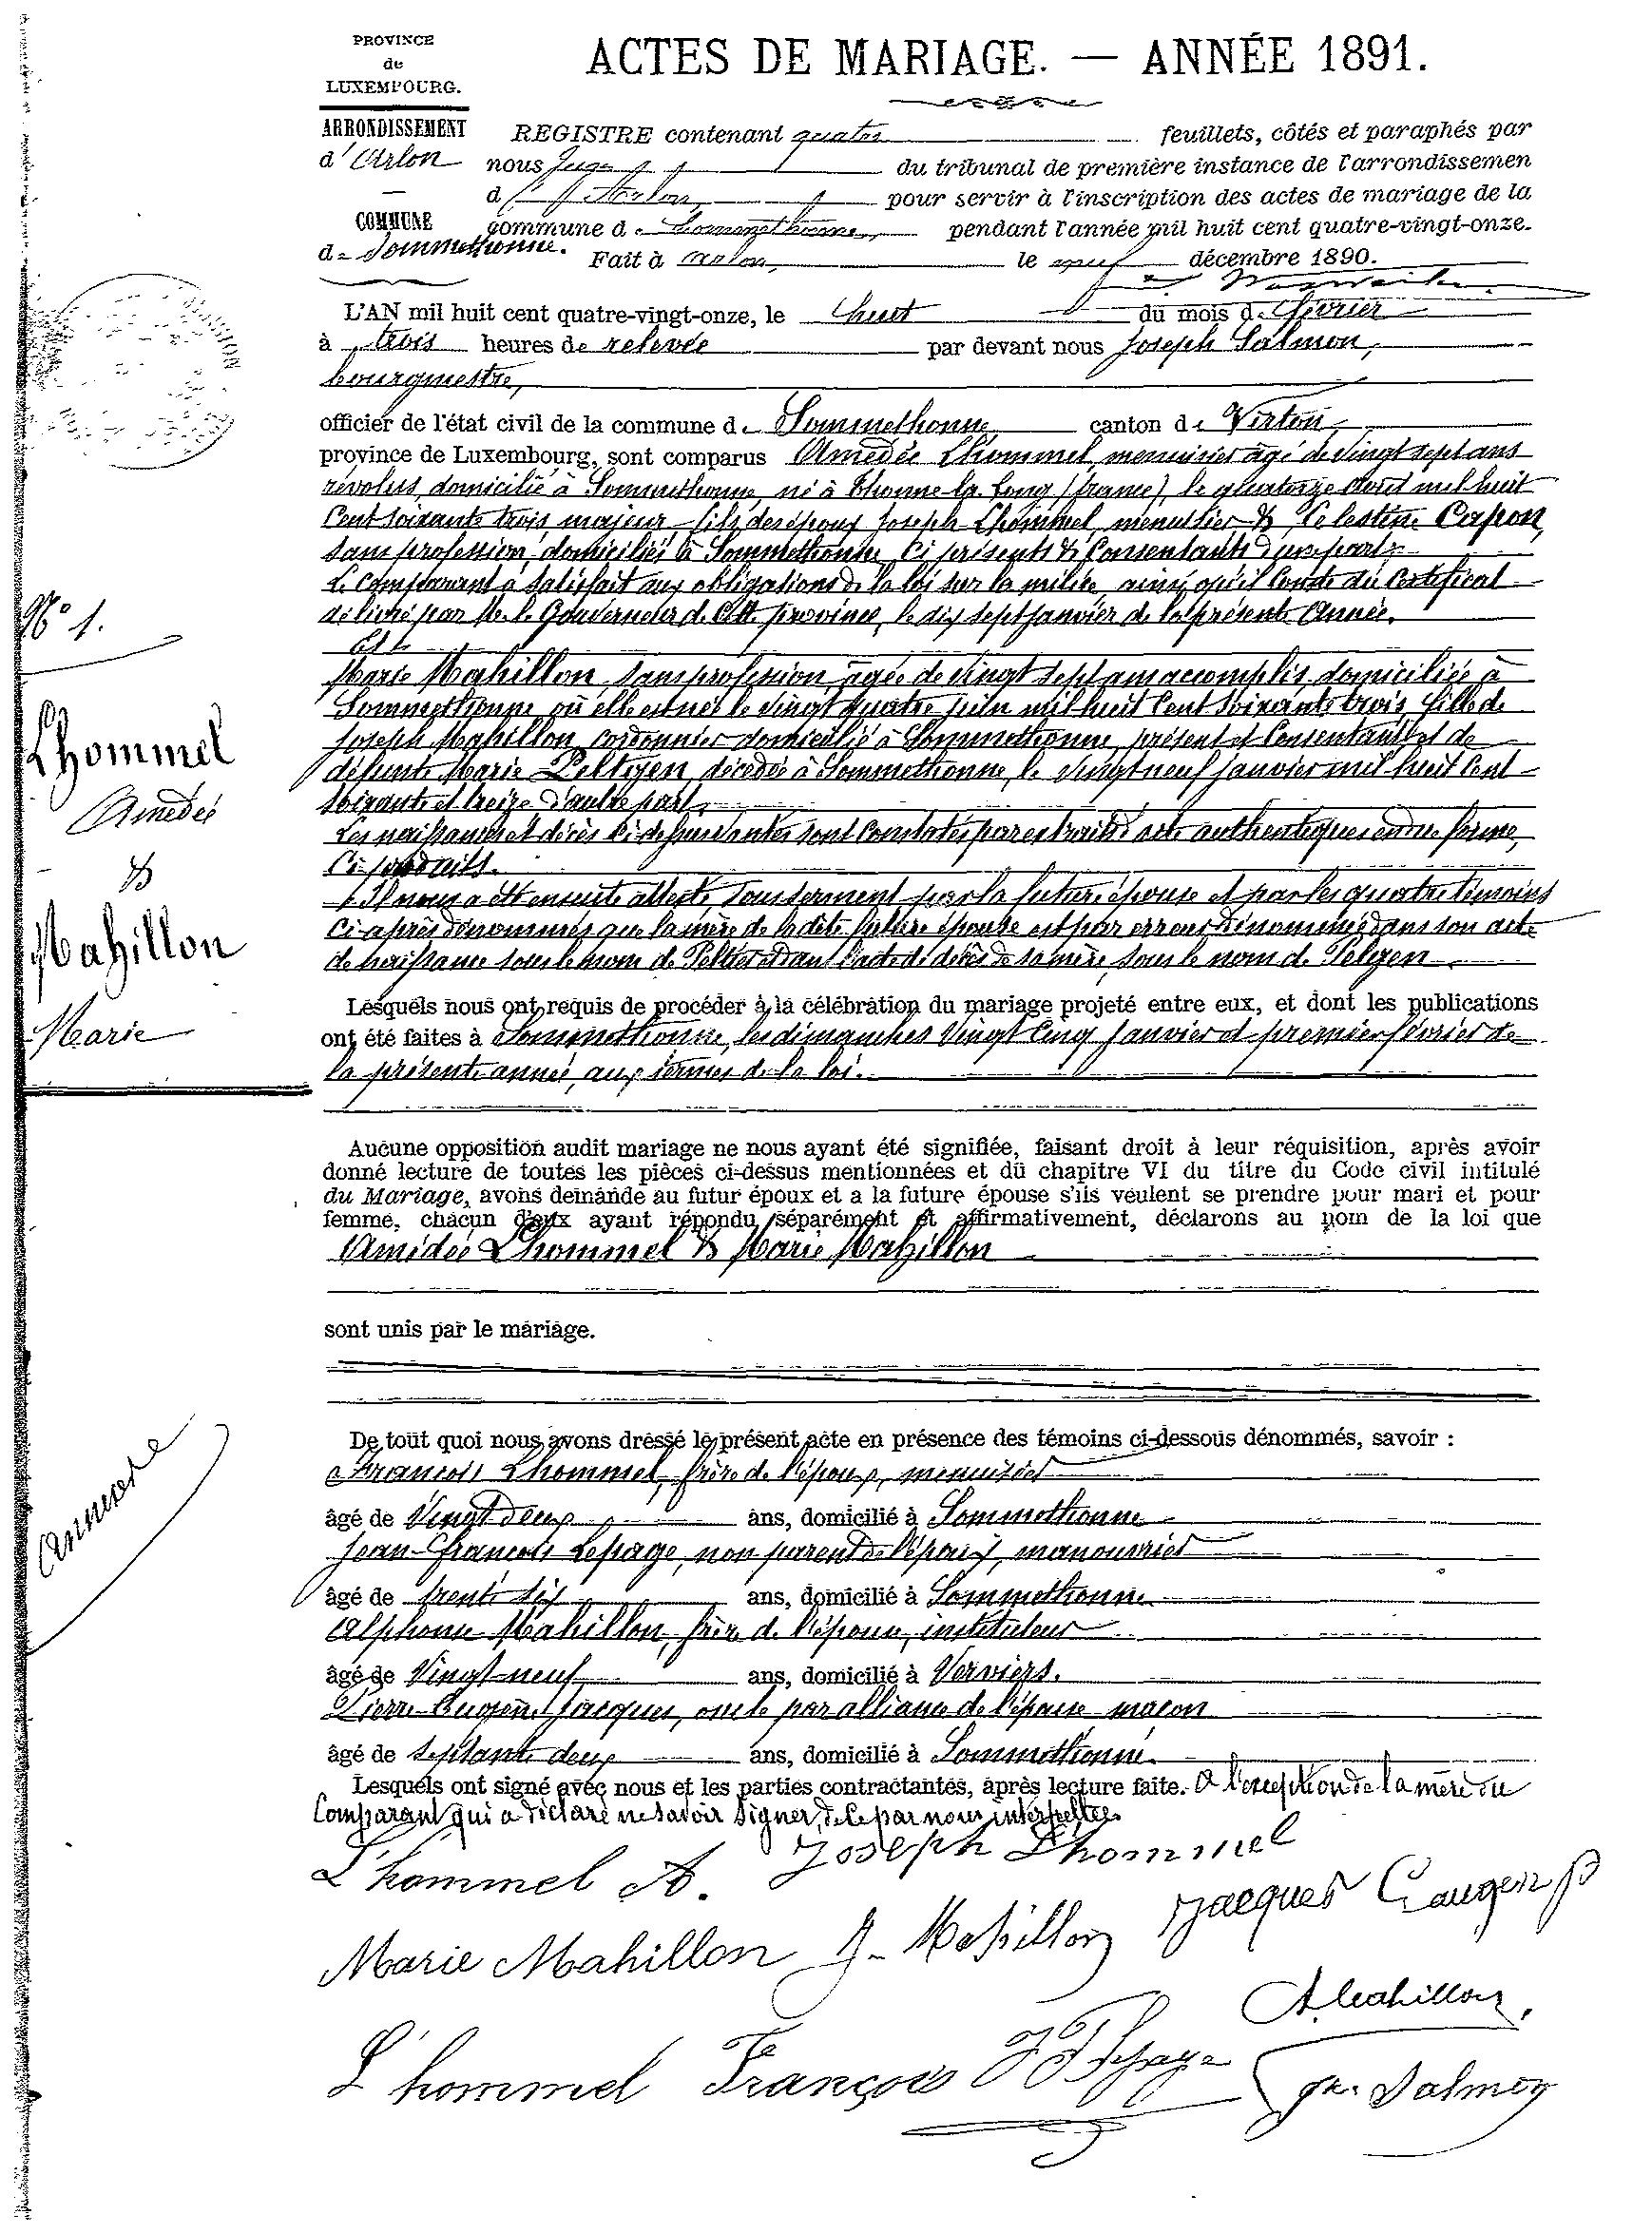 PROVINCE
de
LUXEMBOURG.
ACTES DE MARIAGE. — ANNÉE 1891.
ARRONDISSEMENT
d'Arlon
COMMUNE
de Sommethonne.
REGISTRE contenant quatre feuillets, côtés et paraphés par
nous Juge du tribunal de première instance de l'arrondissemen
d'Arlon, pour servir à l'inscription des actes de mariage de la
commune de Sommethonne, pendant l'année mil huit cent quatre-vingt-onze.
Fait à Arlon, le neuf décembre 1890.
L'AN mil huit cent quatre-vingt-onze, le huit du mois de février
à trois heures de relevée par devant nous Joseph Salmon,
bourgmestre,
officier de l'état civil de la commune de Sommethonne canton de Virton,
province de Luxembourg, sont comparus Amédée Lhommel, menuisier âgé de vingt sept ans
révolus, domicilié à Sommethonne, né à Thonne-la-Long (france), le quatorze août mil huit
Cent soixante trois, majeur, fils des époux Joseph Lhommel, menuisier & Célestine Capon,
sans profession, domiciliés à Sommethonne, ci présents & Consentants d'une part;
Le comparant a satisfait aux obligations de la loi sur la milice, ainsi qu'il Conste du Certificat
délivré par M. le Gouverneur de Cette province, le dix sept janvier de la présente Année.
Et
Marie Mahillon, sans profession, âgée de vingt sept ans accomplis, domiciliée à
Sommethonne où elle est née le vingt quatre juin mil huit Cent soixante trois, fille de
Joseph Mahillon, cordonnier domicilié à Sommethonne, présent et Consentant et de
défunte Marie Peltyen, décédée à Sommethonne, le vingt neuf janvier mil huit Cent
soixante et treize d'autre part.
Les naissances et décès ci-dessus sont constatés par extraits d'acte authentiques en due forme,
Ci-produits.
Il nous a été ensuite attesté sous serment par la future épouse et par les quatre témoins
Ci-après dénommés que la mère de la dite future épouse est par erreur dénommée dans son acte
de naissance sous le nom de Peltier et dans l'acte de décès de sa mère, sous le nom de Pelyen.
Lesquels nous ont requis de procéder à la célébration du mariage projeté entre eux, et dont les publications
ont été faites à Sommethonne, les dimanches vingt Cinq janvier et premier février de
la présente année, aux termes de la loi.
Aucune opposition audit mariage ne nous ayant été signifiée, faisant droit à leur réquisition, après avoir
donné lecture de toutes les pièces ci-dessus mentionnées et du chapitre VI du titre du Code civil intitulé
du Mariage, avons demandé au futur époux et a la future épouse s'ils veulent se prendre pour mari et pour
femme, chacun d'eux ayant répondu séparément et affirmativement, déclarons au nom de la loi que
Amédée Lhommel & Marie Mahillon
sont unis par le mariage.
De tout quoi nous avons dressé le présent acte en présence des témoins ci-dessous dénommés, savoir :
François Lhommel, frère de l'époux, menuisier
âgé de Vingt deux ans, domicilié à Sommethonne
Jean-François Lepage, non parent de l'époux, manouvrier
âgé de trente six ans, domicilié à Sommethonne
Alphonse Mahillon, frère de l'épouse, instituteur
âgé de Vingt-neuf ans, domicilié à Verviers.
Pierre-Eugène Jacques, oncle par alliance de l'épouse maçon
âgé de septante deux ans, domicilié à Sommethonne.
Lesquels ont signé avec nous et les parties contractantes, après lecture faite. A l'exception de la mère du
Comparant qui a déclaré ne savoir signer, de ce par nous interpellée.
L'hommel A. Joseph Lhommel
Marie Mahillon J. Mahillon Jacques Eaugen P
A. Mahillon,
L'hommel François JF Lepage Jh. Salmon
N° 1.
Lhommel
Amédée
&
Mahillon
Marie
Annexe